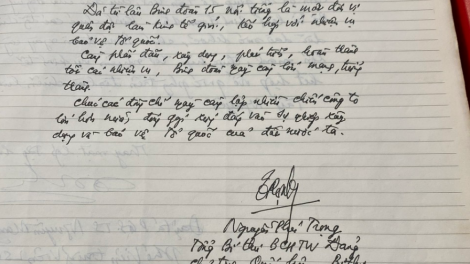 Đã từ lâu Binh đoàn 15 nổi tiếng là một đơn vị
quân đội làm kinh tế giỏi, kết hợp với nhiệm vụ
bảo vệ Tổ quốc.
Càng phấn đấu, xây dựng, phát triển, hoàn thành
tốt các nhiệm vụ, Binh đoàn ngày càng lớn mạnh, trưởng
thành.
Chúc các đồng chí ngày càng lập nhiều chiến công to
lớn hơn nữa, đóng góp xứng đáng vào sự nghiệp xây
dựng và bảo vệ Tổ quốc của đất nước ta.
Nguyễn Phú Trọng
Tổng Bí thư BCHTW Đảng
Chủ tịch Quốc